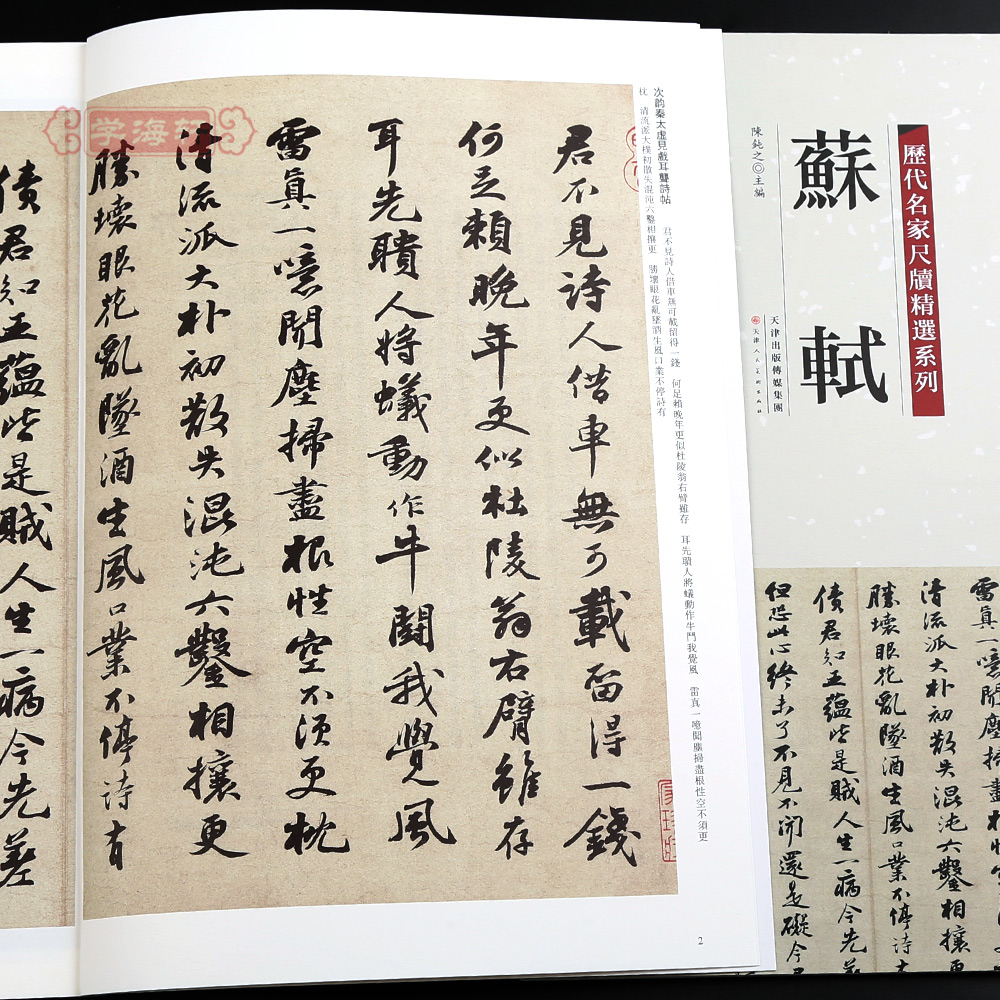 歷代名家尺牘精選系列
蘇軾
陳鈍之◎主編
天津出版傳媒集團
天津人民美術出版社
雷真一噫聞塵掃盡根性空
清流派大朴初散失混沌六鑿相攘更
勝壞眼花亂墜酒生風口業不停詩有
債君知五蘊皆是賊人生一病今先差
但恐此心終未了不見不聞還是礙今
次韵秦太虛見戲耳聾詩帖　君不見詩人借車無可載留得一錢　何足賴晚年更似杜陵翁右臂雖存　耳先聵人將蟻動作牛鬥我覺風　雷真一噫聞塵掃盡根性空不須更
枕　清流派大樸初散失混沌六鑿相攘更　勝壞眼花亂墜酒生風口業不停詩有
君不見詩人借車無可載留得一錢
何足賴晚年更似杜陵翁右臂雖存
耳先聵人將蟻動作牛鬪我覺風
雷真一噫聞塵掃盡根性空不須更枕
清流派大朴初散失混沌六鑿相攘更
勝壞眼花亂墜酒生風口業不停詩有
債君知五蘊皆是賊人生一病今先差
2
学海轩